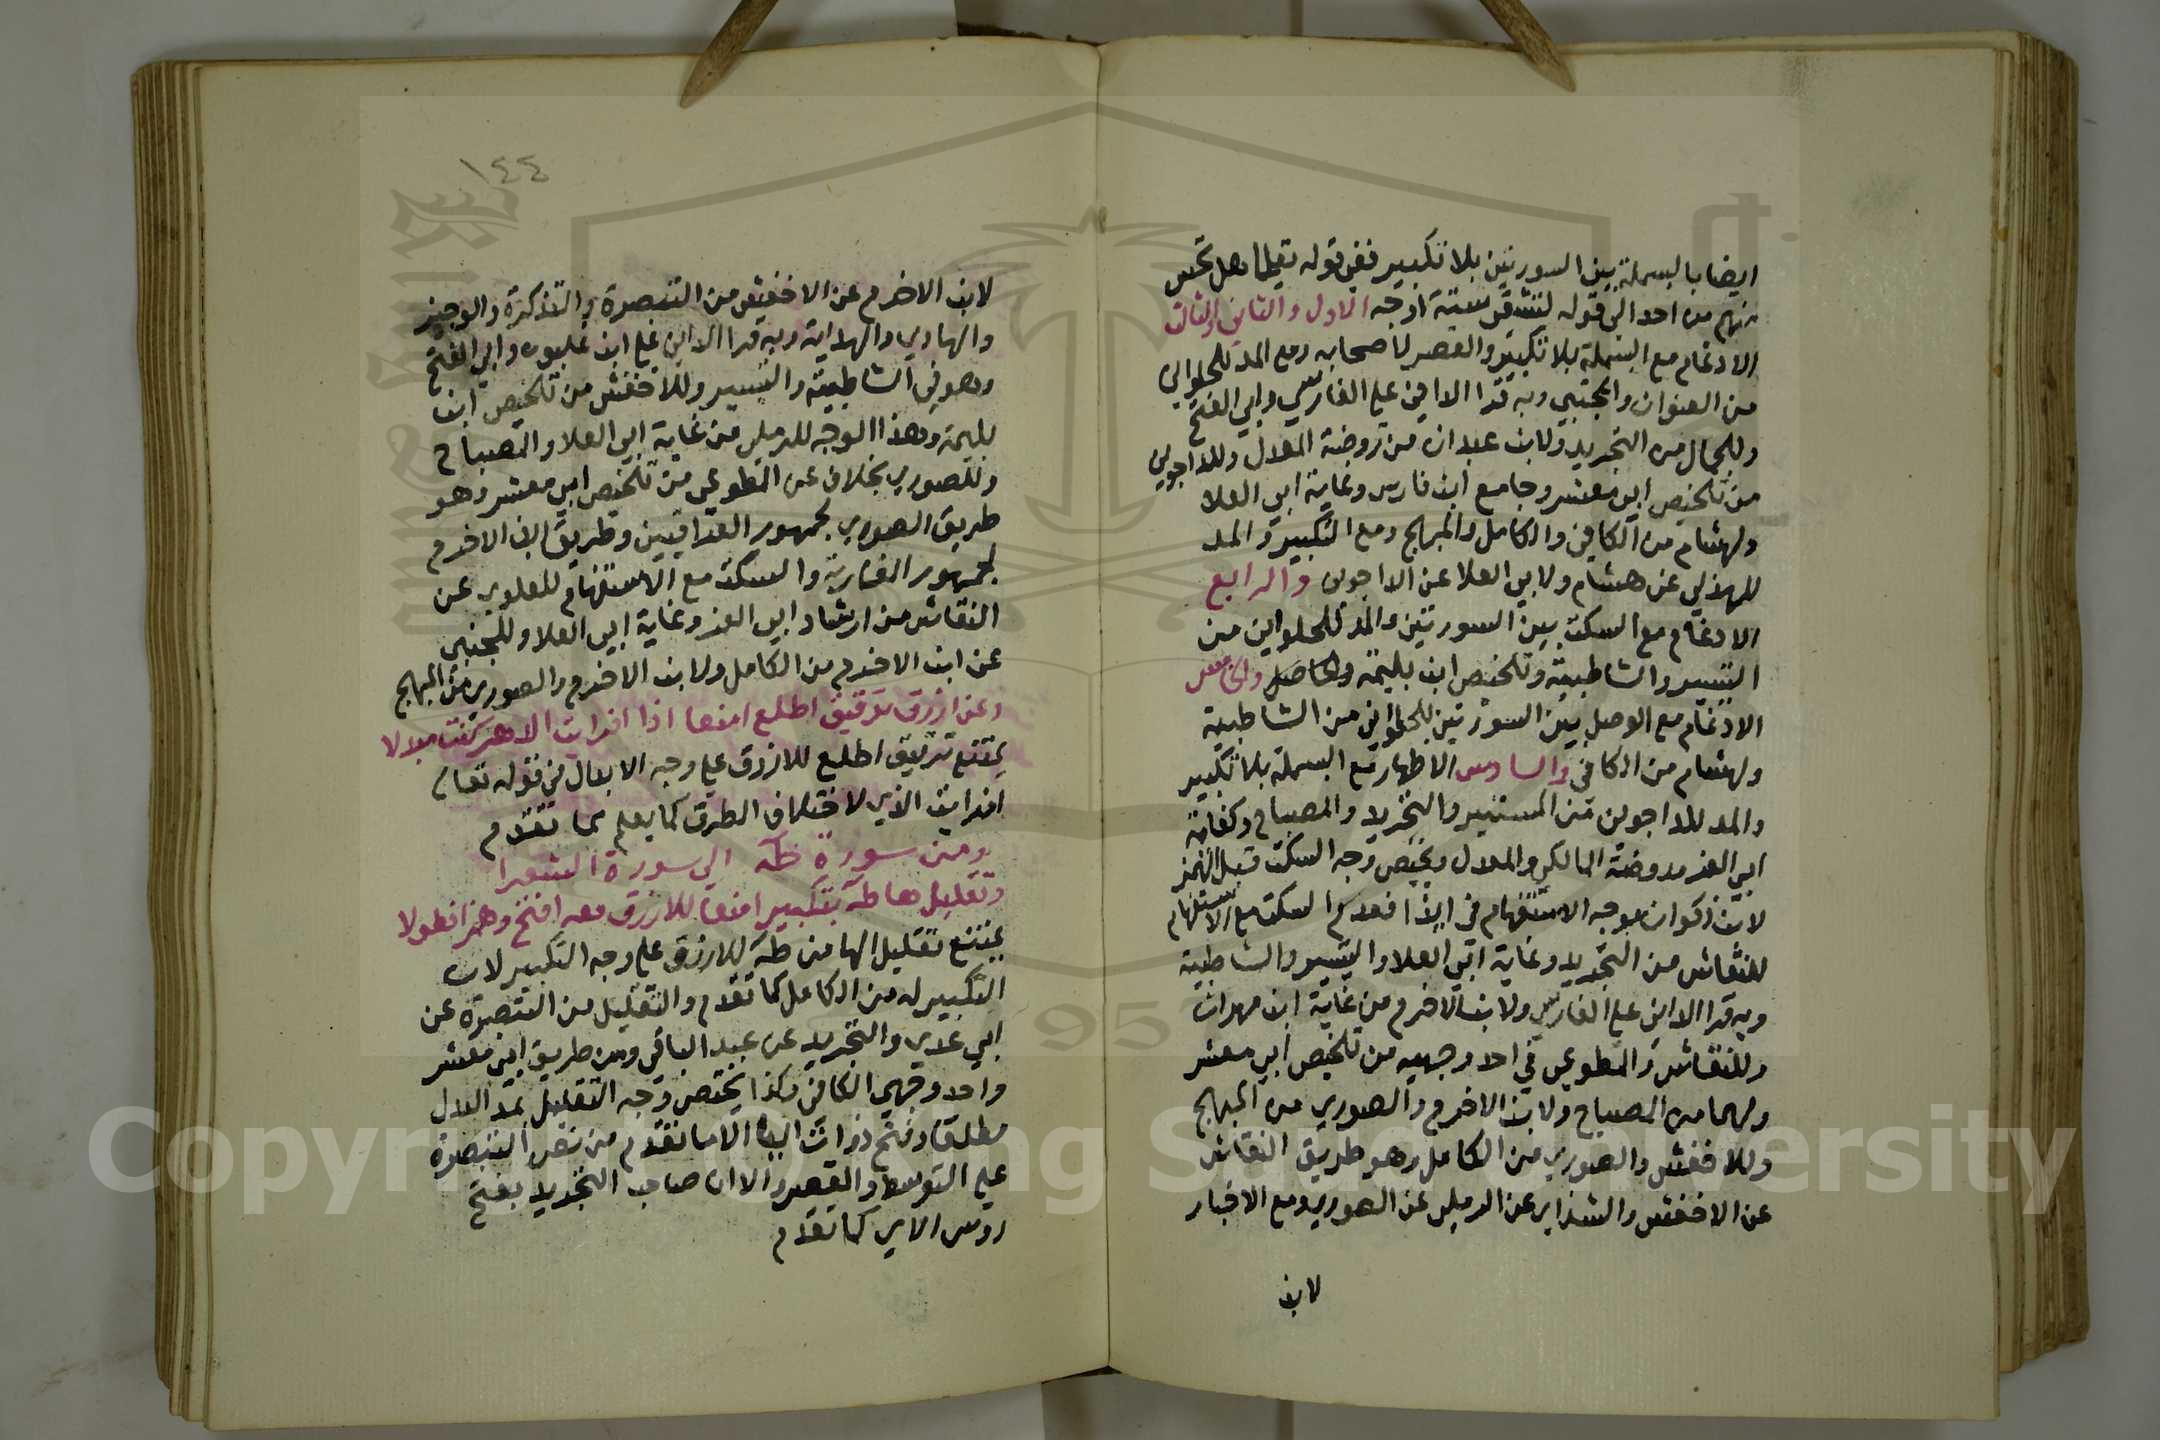 ايضا بالبسملة بين السورتين بلا تكبير ففي قوله تعالى هل تحس
منهم من احد الى قوله لتشقى ستة اوجه الاول والثاني والثالث
الادغام مع البسملة بلا تكبير والقصر لاصحابه ومع المد للحلواني
من العنوان والمجتبى وبه قرا الداني علي الفارسي وابي الفتح
وللجمال من التجريد ولابن عبدان من روضة المعدل وللداجوني
من تلخيص ابي معشر وجامع ابن فارس وغاية ابي العلا
ولهشام من الكافي والكامل والمبهج ومع التكبير والمد
للهذلي عن هشام ولابي العلا عن الداجوني والرابع
الادغام مع السكت بين السورتين والمد للحلواني من
التيسير والشاطبية وتلخيص ابن بليمة والخامس
الادغام مع الوصل بين السورتين للحلواني من الشاطبية
ولهشام من الكافي والسادس الاظهار مع البسملة بلا تكبير
والمد للداجوني من المستنير والتجريد والمصباح وكفاية
ابي العز وروضة المالكي والمعدل ويختص وجه السكت قبل الهمز
لابن ذكوان بوجه الاستفهام في ايذا فعدم السكت مع الاستفهام
للنقاش من التجريد وغاية ابي العلا والتيسير والشاطبية
وبه قرا الداني علي الفارسي ولابن الاخرم من غاية ابن مهران
وللنقاش والمطوعي في احد وجهيه من تلخيص ابي معشر
ولهما من المصباح ولابن الاخرم والصوري من المبهج
وللاخفش والصوري من الكامل وهو طريق النقاش
عن الاخفش والشذاي عن الرملي عن الصوري ومع الاخبار
لابن
١٤٤
لابن الاخرم عن الاخفش من التبصرة والتذكرة والوجيز
والهادي والهداية وبه قرا الداني علي ابن غلبون وابي الفتح
وهو في الشاطبية والتيسير وللاخفش من تلخيص ابن
بليمة وهذا الوجه للرملي من غاية ابي العلا والمصباح
وللصوري بخلاف عن المطوعي من تلخيص ابي معشر وهو
طريق الصوري لجمهور العراقيين وطريق ابن الاخرم
لجمهور المغاربة والسكت مع الاستفهام للعلوي عن
النقاش من ارشاد ابي العز وغاية ابي العلا وللجنبي
عن ابن الاخرم من الكامل ولابن الاخرم والصوري من المبهج
وعن ازرق ترقيق اطلع امنعا اذا افرايت الاهر كنت مبدلا
يمتنع ترقيق اطلع للازرق علي وجه الابدال في قوله تعالى
افرايت الذي لاختلاف الطرق كما يعلم مما تقدم
ومن سورة طه الى سورة الشعرا
وتقليل ها طه بتكبير امنعا للازرق معه افتح وهمز افطولا
يمتنع تقليل الها من طه للازرق علي وجه التكبير لان
التكبير له من الكامل كما تقدم والتقليل من التبصرة عن
ابي عدي والتجريد عن عبد الباقي ومن طريق ابي معشر
واحد وجهي الكافي وكذا يختص وجه التقليل بمد البدل
مطلقا وفتح ذوات اليا الا ما تقدم من نص التبصرة
علي التوسط والقصر والا ان صاحب التجريد بفتح
روس الاي كما تقدم
Copyright © King Saud University